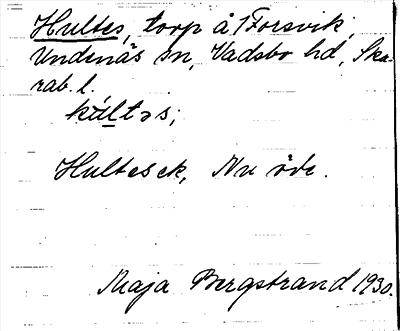 Hultes, torp å Forsvik,
Undenäs sn, Vadsbo hd, Ska-
rab. l.
kúltəs;
Hultesek, Nu öde.
Maja Bergstrand 1930.